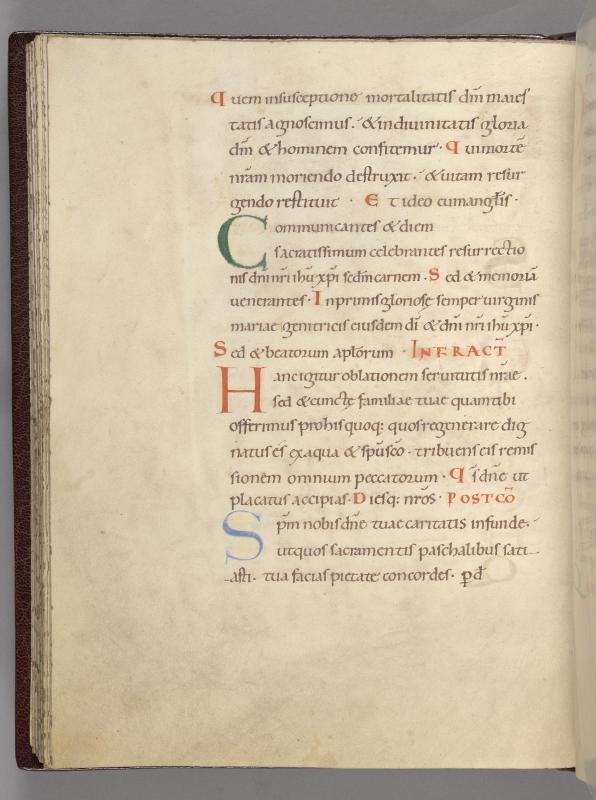 Quem insusceptione mortalitatis dm̄ maies
tatis agnoscimus. & indiuinitatis gloria
dm̄ & hominem confitemur. Qui mortē
nr̄am moriendo destruxit. & uitam resur
gendo restituit. Et ideo cumangl̄is.
Communicantes & diem
sacratissimum celebrantes resurrectio
nis dn̄i nr̄i ihū xp̄i sedm̄ carnem. Sed & memoriā
uenerantes. Inprimis gloriosę semper uirginis
mariae genitricis eiusdem dī & dn̄i nr̄i ihū xp̄i.
Sed & beatorum aplōrum. INFRACT̄
Hanc igitur oblationem seruitutis nr̄ae.
sed & cunctę familiae tuae quam tibi
offerimus prohis quoq: quos regenerare dig
natus es exaqua & sp̄u sc̄o. tribuens eis remis
sionem omnium peccatorum. Qs̄ dn̄e ut
placatus accipias. Diesq: nr̄os. POSTCŌ
Sp̄m nobis dn̄e tuae caritatis infunde.
utquos sacramentis paschalibus sati
asti. tua facias pietate concordes. p̄ d̄